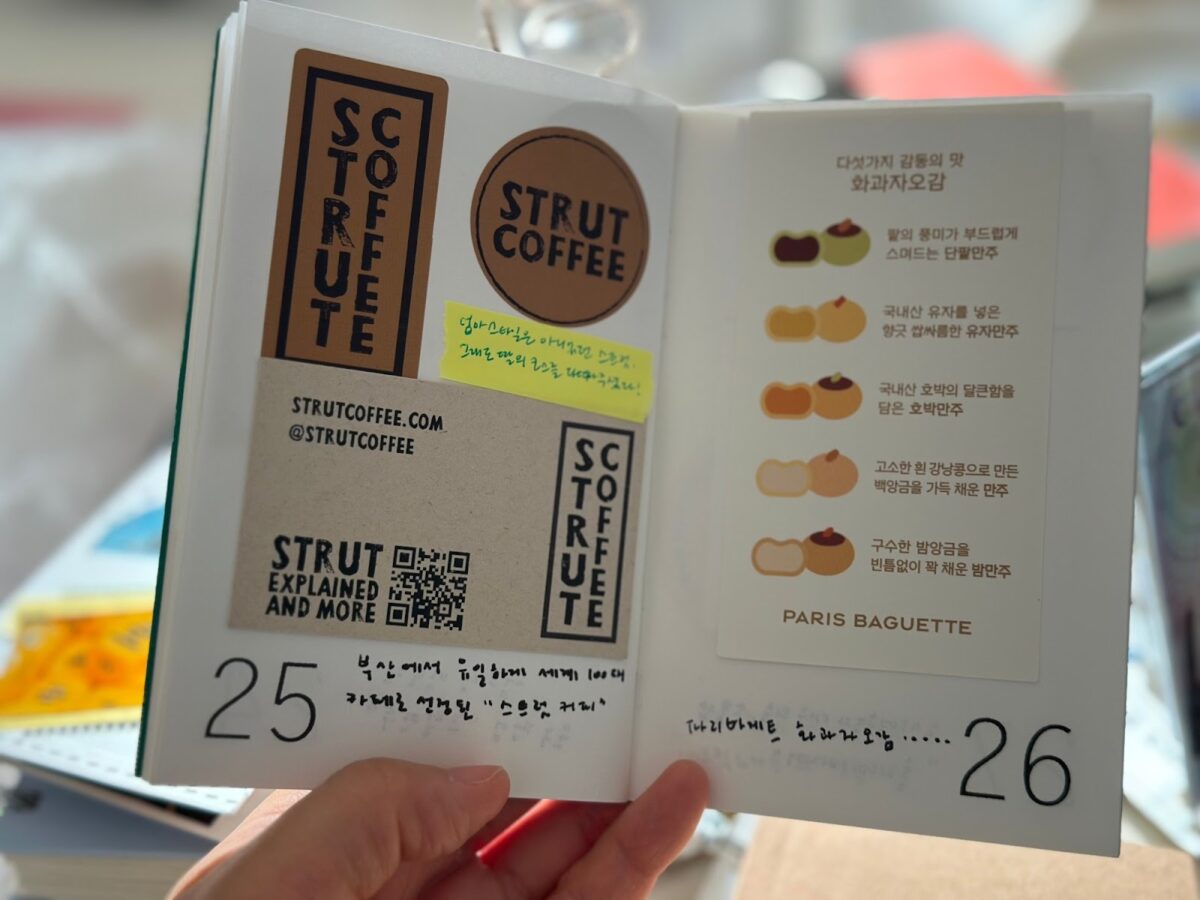 STRUT
COFFEE
STRUT
COFFEE
엄마 스타일은 아니지만 스트럿,
그래도 딸의
STRUTCOFFEE.COM
@STRUTCOFFEE
STRUT
EXPLAINED
AND MORE
STRUT
COFFEE
25
부산에서 유일하게 세계 100대
카페로 선정된 "스트럿 커피"
다섯가지 감동의 맛
화과자오감
팥의 풍미가 부드럽게
스며드는 단팥만주
국내산 유자를 넣은
향긋 쌉싸름한 유자만주
국내산 호박의 달큰함을
담은 호박만주
고소한 흰 강낭콩으로 만든
백앙금을 가득 채운 만주
구수한 밤앙금을
빈틈없이 꽉 채운 밤만주
PARIS BAGUETTE
파리바게트 화과자오감.....
26